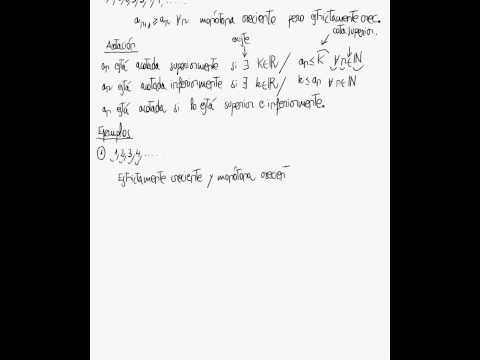 1, 2, 3, 3, 4, ....
aₙ₊₁ ≥ aₙ ∀n monótona creciente pero estrictamente crec.
existe
cota superior.
Acotación
aₙ está acotada superiormente si ∃ K∈ℝ / aₙ ≤ K ∀ n∈ℕ
aₙ está acotada inferiormente si ∃ k∈ℝ / k ≤ aₙ ∀ n∈ℕ
aₙ está acotada si lo está superior e inferiormente.
Ejemplos
① 1, 2, 3, 4, ....
Estrictamente creciente y monótona crecient